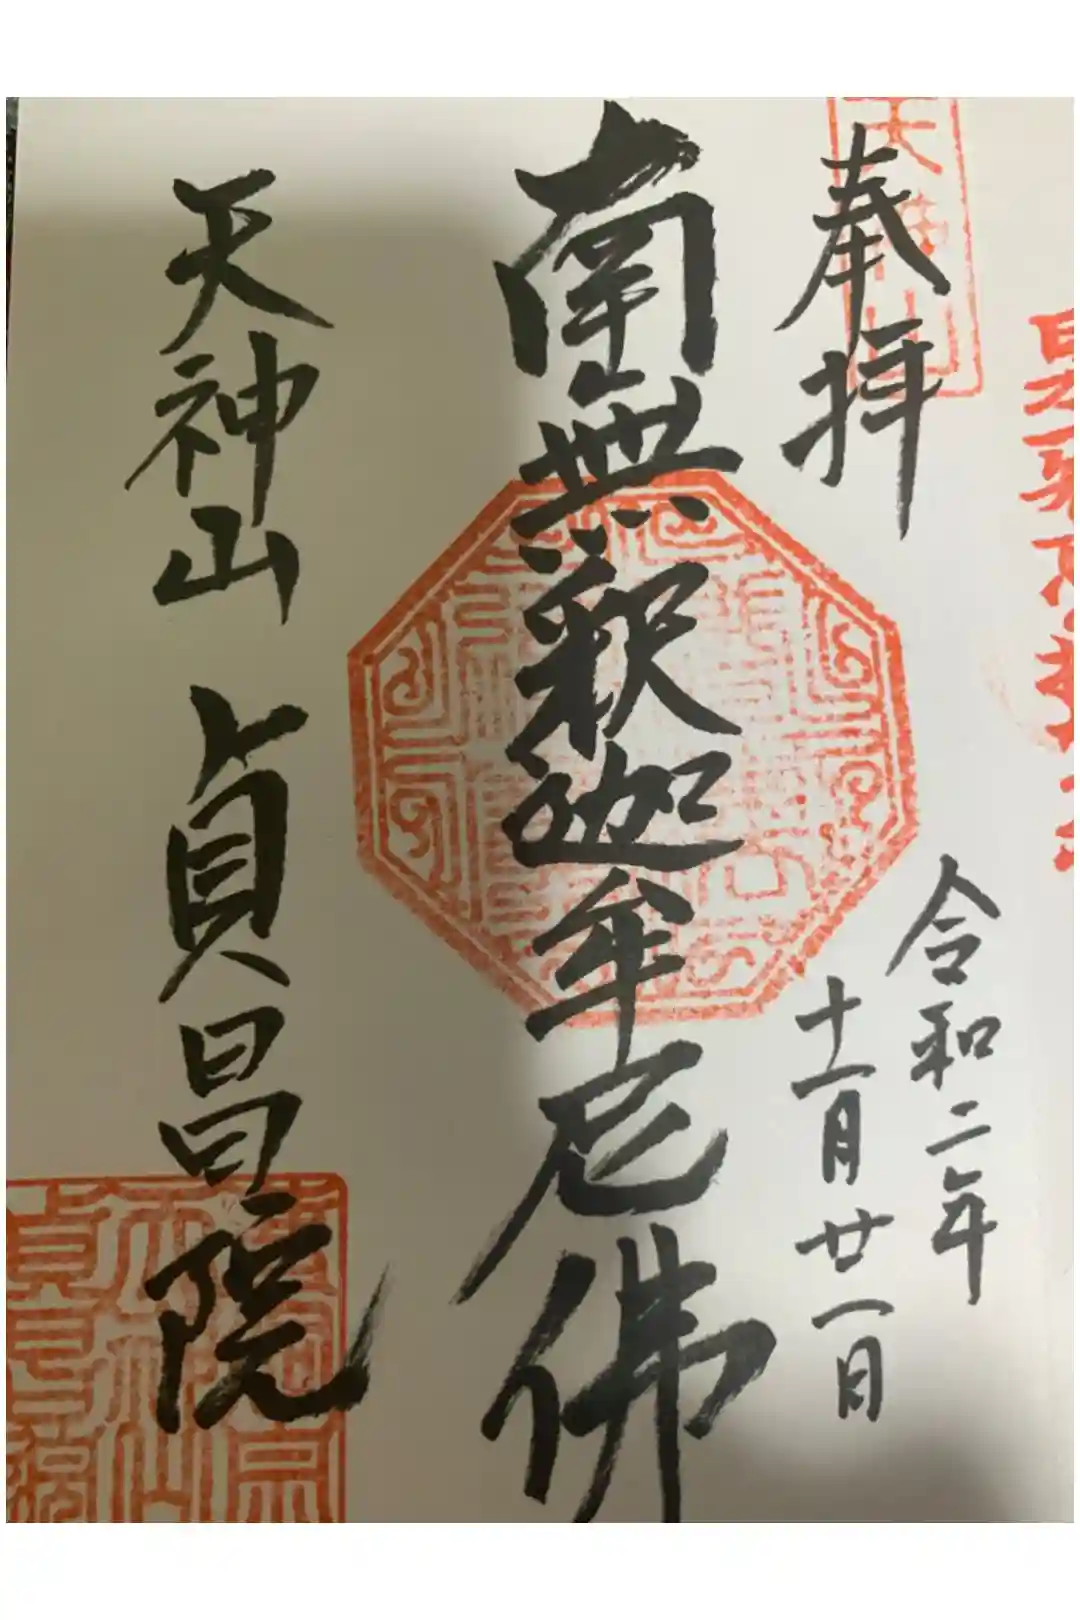 天神山
奉拝
令和二年
十一月廿一日
南無釈迦牟尼佛
天神山 貞昌院